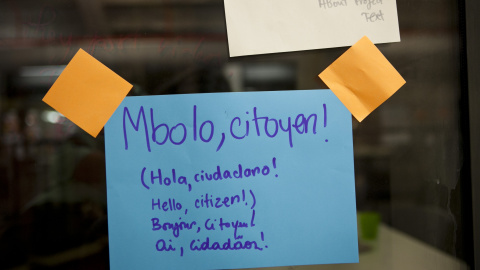 Text
Mbolo, citoyen!
(Hola, ciudadano!
Hello, citizen!)
Bonjour, Citoyen!
Oi, cidadão!